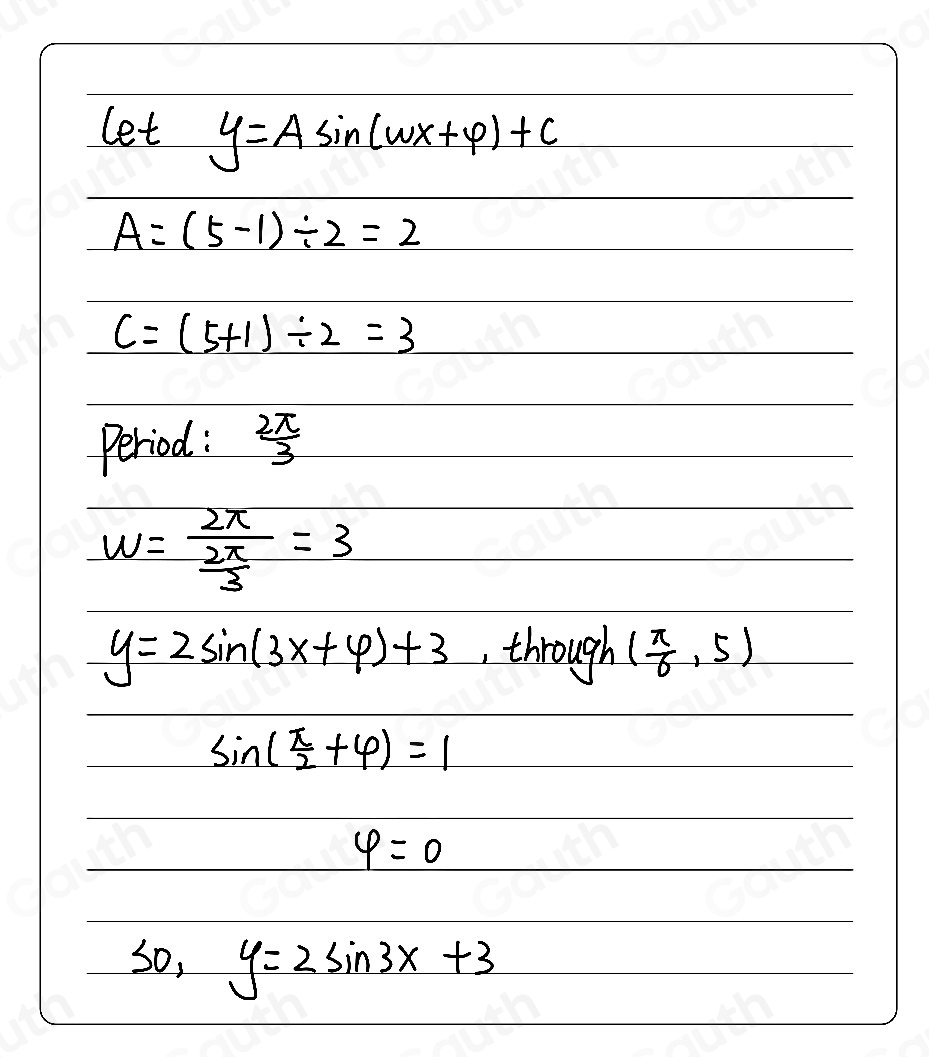 Let y=A sin(wx+φ)+C
A=(5-1)÷2=2
C=(5+1)÷2=3
Period: 2π/3
w=2π/(2π/3)=3
y=2sin(3x+φ)+3, through(π/6,5)
sin(π/2+φ)=1
φ=0
so, y=2sin3x+3